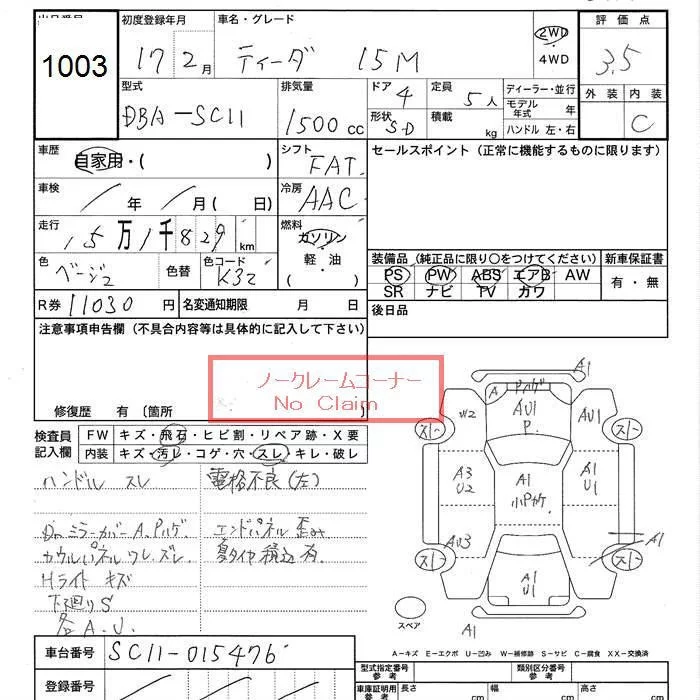 出品番号 初度登録年月 車名・グレード 評価点
1003 17 2月 ティーダ 15M 2WD 3.5
4WD
型式 排気量 ドア 4 定員 5人 ディーラー・並行 外装 内装
DBA-SC11 1500cc 形状 S-D 積載 kg モデル年式 年 C
ハンドル 左・右
車歴 自家用・( ) シフト FAT セールスポイント(正常に機能するものに限ります)
車検 / 年 / 月( 日) 冷房 AAC
走行 15万1千829km 燃料 ガソリン
軽・油
( )
色 ベージュ 色替 色コード K32 装備品(純正品に限り○をつけてください) 新車保証書
PS PW ABS エアB AW 有・無
SR ナビ TV カワ
R券 11030円 名変通知期限 月 日 後日品
注意事項申告欄(不具合内容等は具体的に記入して下さい)
ノークレームコーナー
No Claim
修復歴 有〔箇所 〕
検査員記入欄 FW キズ・飛石・ヒビ割・リペア跡・X要
内装 キズ・汚レ・コゲ・穴・スレ・キレ・破レ
ハンドル スレ 電格不良(左)
Dr.ミラーカバーA.Pハゲ. エンドパネル 歪み
カウルパネルワレ.ズレ. 夏タイヤ積込有.
Hライト キズ
下廻りS
各A.U.
A1
A Pハゲ
W2 AU1 AU1
P.
スレー スレー
A3 A1 A1
U2 小Pカケ U1
AU3 A1
スレー スレー
A1
U1
スペア A1
A-キズ E-エクボ U-凹み W-補修跡 S-サビ C-腐食 XX-交換済
車台番号 SC11-015476
登録番号
型式指定番号 参考 類別区分番号 参考
車庫証明用 参考 長さ cm 幅 cm 高さ cm